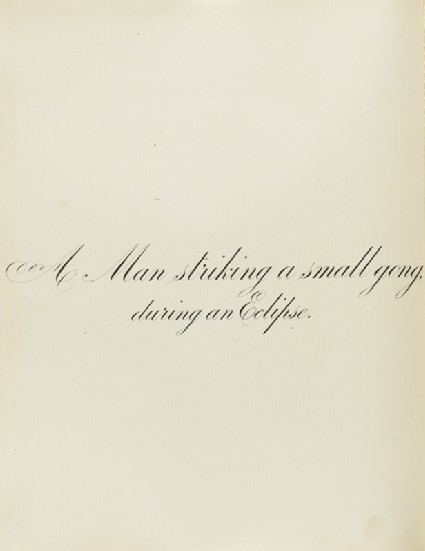 A Man striking a small gong,
during an Eclipse.